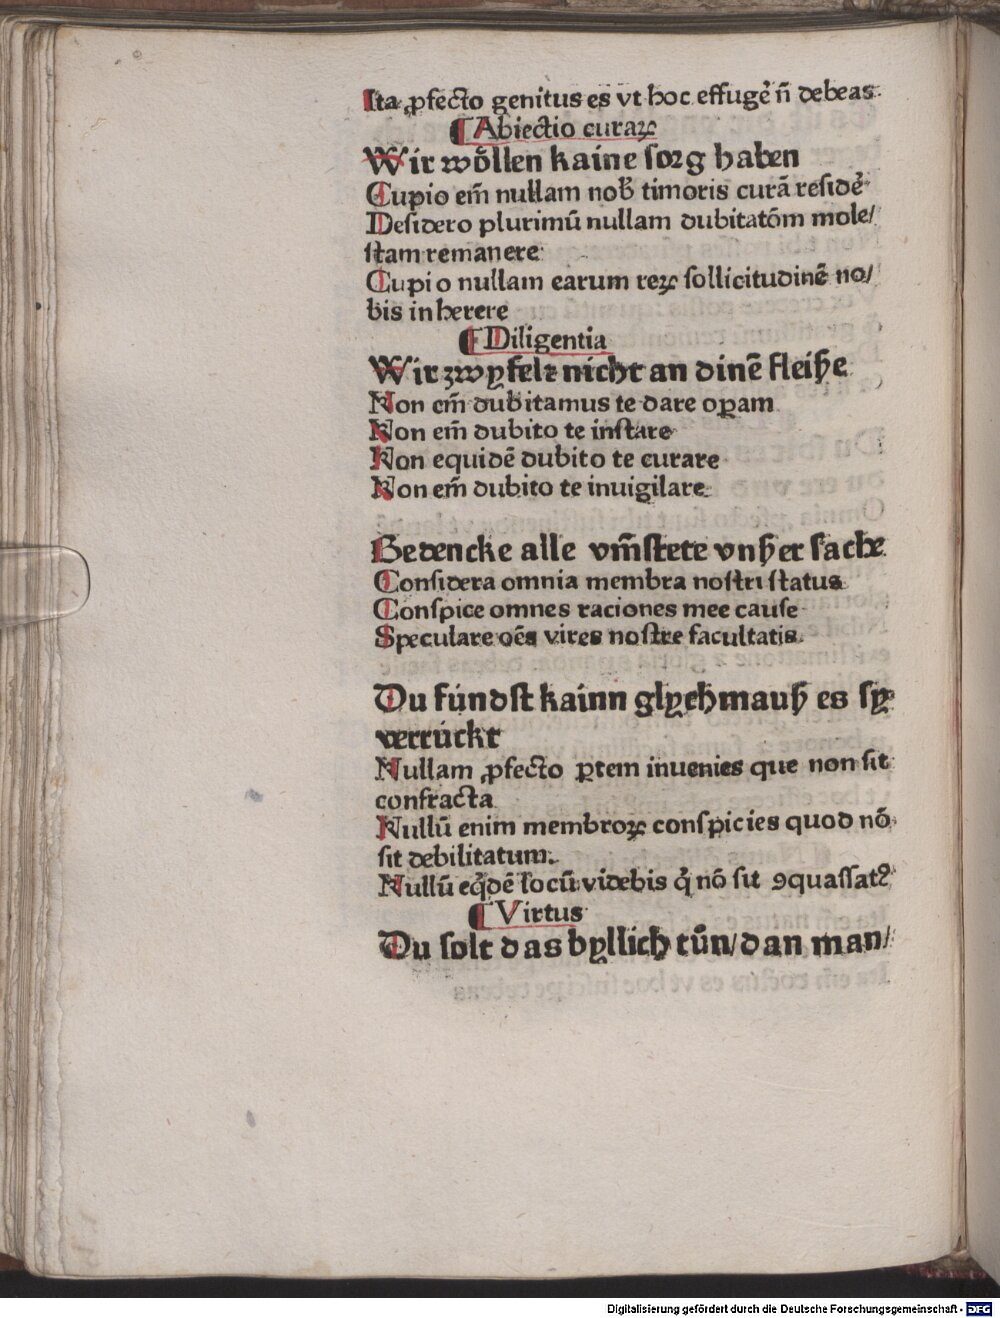 Ita ꝓfecto genitus es vt hoc effugẽ ñ debeas.
¶ Abiectio curaꝝ
Wir woͤllen kaine ſorg haben
Cupio em̃ nullam nob̃ timoris curã reſidẽ
Deſidero plurimũ nullam dubitatõm mole/
ſtam remanere
Cupio nullam earum reꝝ ſollicitudinẽ no/
bis inherere
¶ Diligentia
Wir zwyfelꝛ nicht an dinẽ fleiſʒe
Non em̃ dubitamus te dare oꝑam
Non em̃ dubito te inſtare
Non equidẽ dubito te curare
Non em̃ dubito te inuigilare.
Bedencke alle vm̃ſtete vnſʒer ſache
Conſidera omnia membra noſtri ſtatus
Conſpice omnes raciones mee cauſe
Speculare oẽs vires noſtre facultatis.
Du fúndſt kainn glych mauſʒ es ſy
verrúckt
Nullam ꝓfecto ꝑtem inuenies que non ſit
confracta
Nullũ enim membroꝝ conſpicies quod nõ
ſit debilitatum.
Nullũ eq̃dẽ locũ videbis q̃ nõ ſit ꝯquaſſatꝰ
¶ Virtus
Du ſolt das byllich tuͦn/dan man/
Digitalisierung gefördert durch die Deutsche Forschungsgemeinschaft - DFG